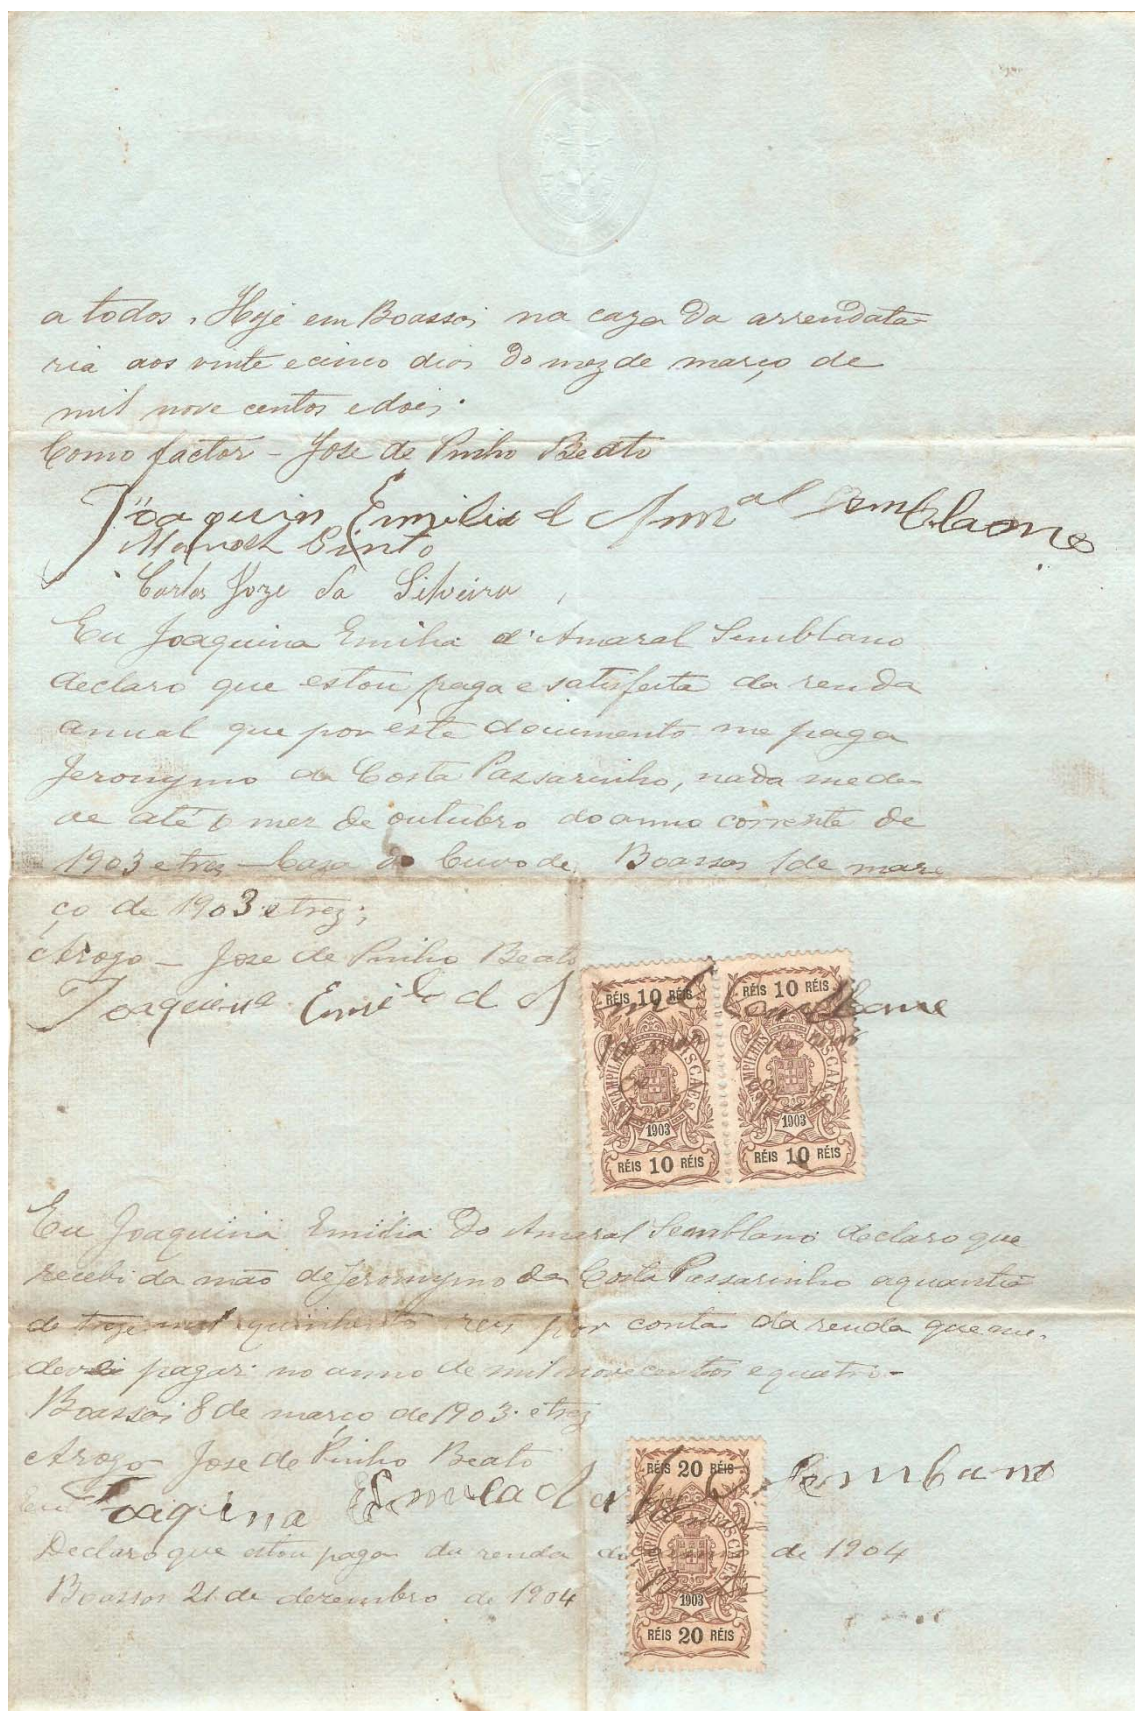 a todos, Hoje em Boassas na caza da arrendata-
ria aos vinte e cinco dias do mez de março de
mil nove centos e dois.
Como factor - Jose de Pinho Beato
Joaquin Emilia d Amal Semblano
Manoel Pinto
Carlos Joze da Silveira,
Eu Joaquina Emilia d'Amaral Semblano
declaro que estou paga e satisfeita da renda
anual que por este documento me paga
Jeronymo da Costa Passarinho, nada me de-
ve até o mez de outubro do anno corrente de
1903 e tres - Caza do Cuvo de Boassas 1 de mar
ço de 1903 e trez;
Arogo - Jose de Pinho Beato
Joaquina Emila d A
RÉIS 10 RÉIS
ESTAMPILHAS FISCAES
1903
RÉIS 10 RÉIS
RÉIS 10 RÉIS
ESTAMPILHAS FISCAES
1903
RÉIS 10 RÉIS
Eu Joaquina Emilia do Amaral Semblano declaro que
recebi da mão de Jeronymo da Costa Passarinho a quantia
de treze mil quinhento reis por conta da renda que me
devei pagar no anno de mil nove centos e quatro-
Boassas 8 de março de 1903 e trez
Arogo - Jose de Pinho Beato
Joaquina Semblano
RÉIS 20 RÉIS
ESTAMPILHAS FISCAES
1903
RÉIS 20 RÉIS
Declaro que estou paga da renda do anno de 1904
Boassas 21 de dezembro de 1904